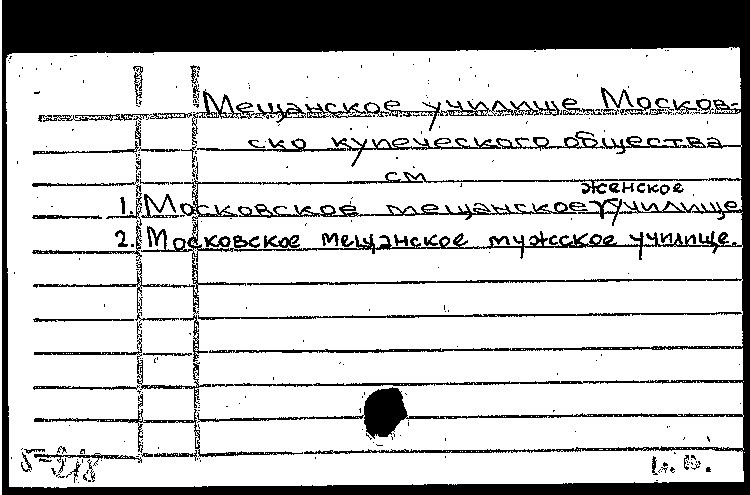 Мещанское училище Москов-
ско купеческого общества
см
женское
1. Московское мещанское училище
2. Московское мещанское мужское училище.